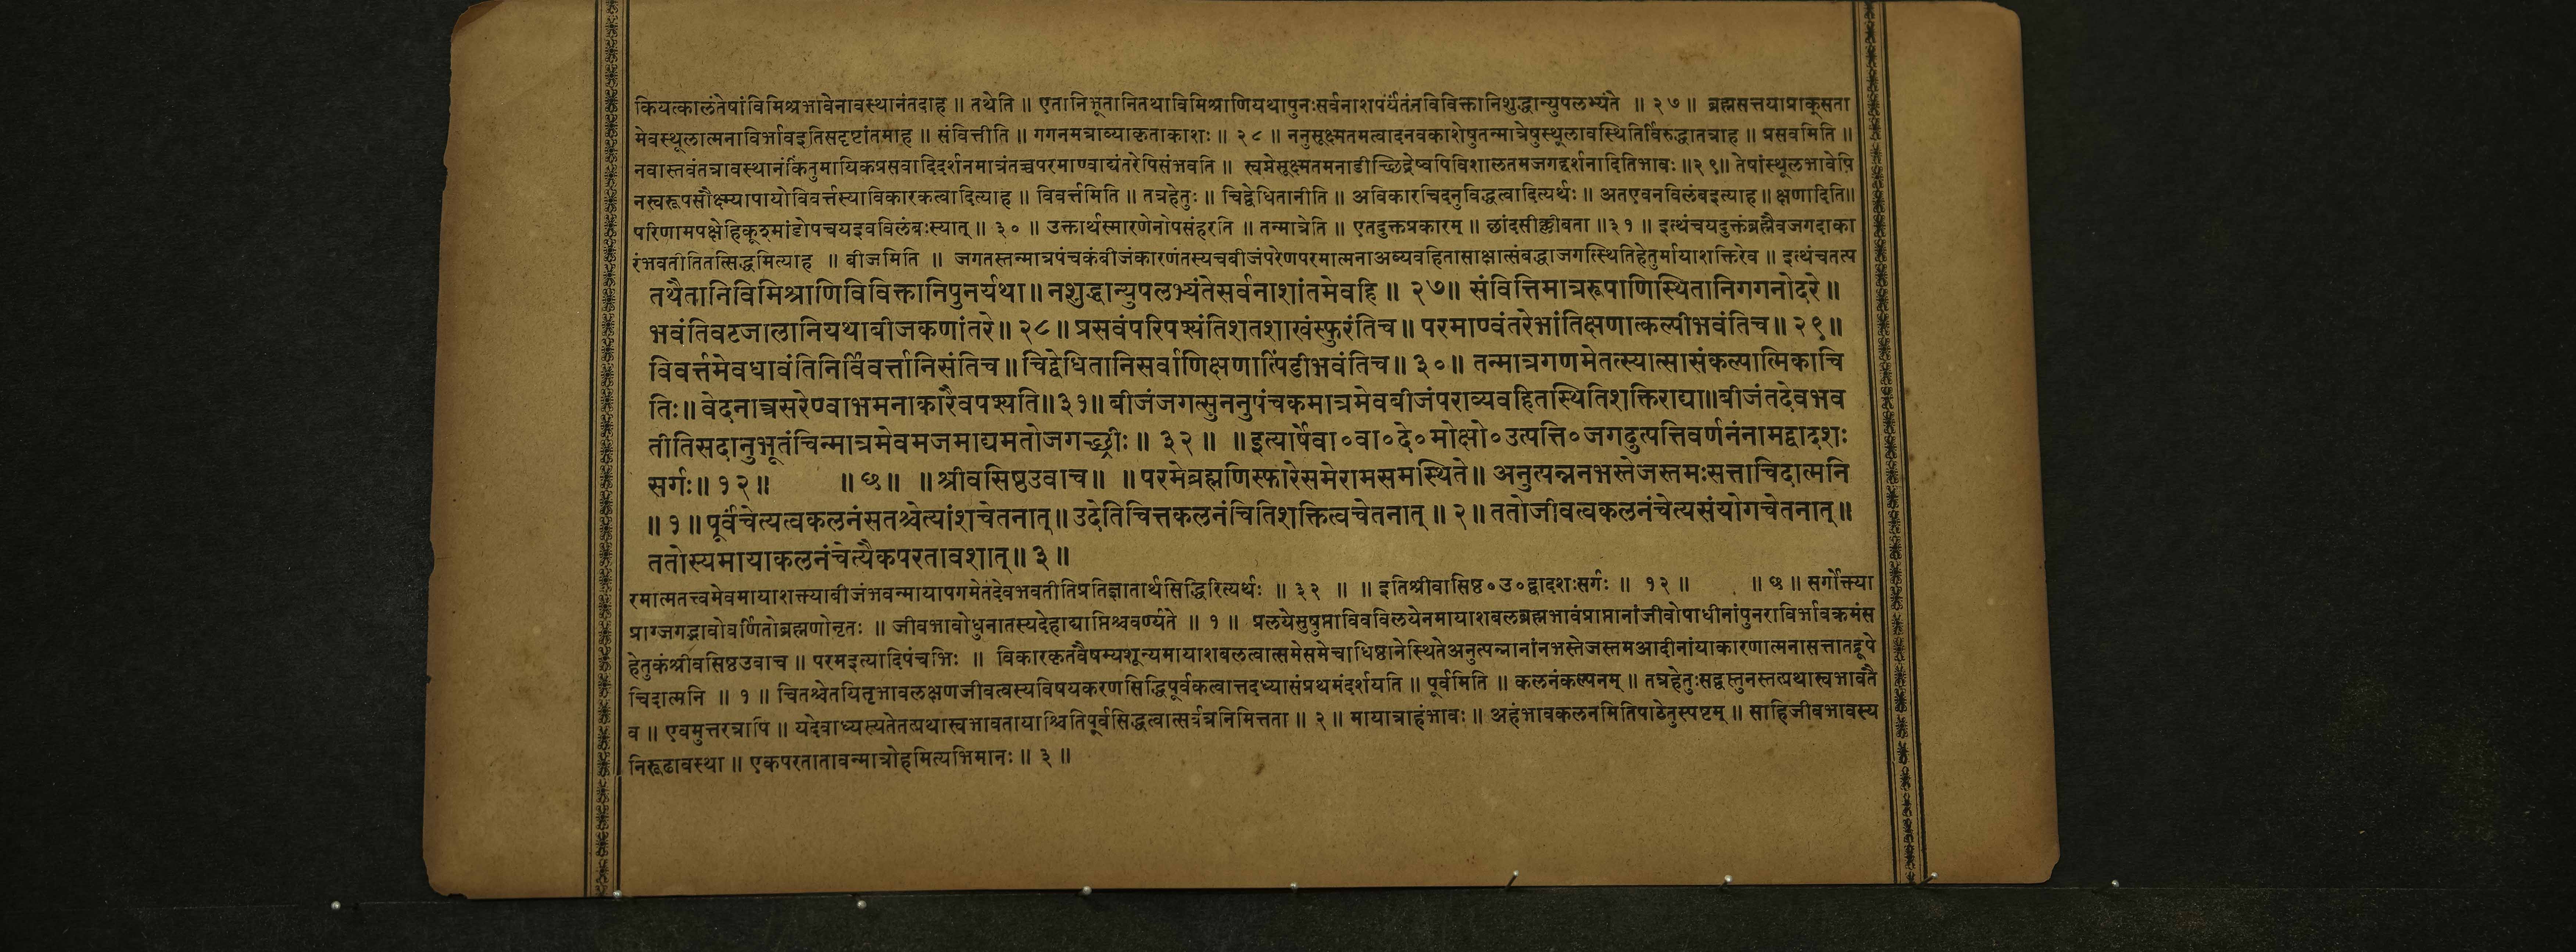 कियत्कालंतेषांविमिश्रभावेनावस्थानंतदाह ॥ तथेति ॥ एतानिभूतानितथाविमिश्राणियथापुनःसर्वनाशपर्यंतंनविविक्तानिशुद्धान्युपलभ्यंते ॥ २७ ॥ ब्रह्मसत्तयाप्राक्सता
मेवस्थूलात्मनाविर्भावइतिसदृष्टांतमाह ॥ संवित्तीति ॥ गगनमत्राव्याकृताकाशः ॥ २८ ॥ ननुसूक्ष्मतमत्वादनवकाशेषुतन्मात्रेषुस्थूलावस्थितिर्विरुद्धातत्राह ॥ प्रसवमिति ॥
नवास्तवंतत्रावस्थानंकिंतुमायिकप्रसवादिदर्शनमात्रंतच्चपरमाण्वाद्यंतरेपिसंभवति ॥ स्वप्नेसूक्ष्मतमनाडीच्छिद्रेष्वपिविशालतमजगद्दर्शनादितिभावः ॥२९॥ तेषांस्थूलभावेपि
नस्वरूपसौक्ष्म्यापायोविवर्त्तस्याविकारकत्वादित्याह ॥ विवर्त्तमिति ॥ तत्रहेतुः ॥ चिद्वेधितानीति ॥ अविकारचिदनुविद्धत्वादित्यर्थः ॥ अतएवनविलंबइत्याह ॥ क्षणादिति॥
परिणामपक्षेहिकूश्मांडोपचयइवविलंबःस्यात् ॥ ३० ॥ उक्तार्थस्मारणेनोपसंहरति ॥ तन्मात्रेति ॥ एतदुक्तप्रकारम् ॥ छांदसीक्लीबता ॥३१ ॥ इत्थंचयदुक्तंब्रह्मैवजगदाका
रंभवतीतितत्सिद्धमित्याह ॥ बीजमिति ॥ जगतस्तन्मात्रपंचकंबीजंकारणंतस्यचबीजंपरेणपरमात्मनाअव्यवहितासाक्षात्संबद्धाजगत्स्थितिहेतुर्मायाशक्तिरेव ॥ इत्थंचतत्प
तथैतानिविमिश्राणिविविक्तानिपुनर्यथा॥ नशुद्धान्युपलभ्यंतेसर्वनाशांतमेवहि ॥ २७॥ संवित्तिमात्ररूपाणिस्थितानिगगनोदरे॥
भवंतिवटजालानियथाबीजकणांतरे॥ २८॥ प्रसवंपरिपश्यंतिशतशाखंस्फुरंतिच॥ परमाण्वंतरेभांतिक्षणात्कल्पीभवंतिच॥ २९॥
विवर्त्तमेवधावंतिनिर्विवर्त्तानिसंतिच॥ चिद्वेधितानिसर्वाणिक्षणात्पिंडीभवंतिच॥ ३०॥ तन्मात्रगणमेतत्स्यात्सासंकल्पात्मिकाचि
तिः॥ वेदनात्रसरेण्वाभमनाकारैवपश्यति॥३१॥ बीजंजगत्सुननुपंचकमात्रमेवबीजंपराव्यवहितस्थितिशक्तिराद्या॥बीजंतदेवभव
तीतिसदानुभूतंचिन्मात्रमेवमजमाद्यमतोजगच्छ्रीः॥ ३२॥ ॥इत्यार्षेवा०वा०दे०मोक्षो०उत्पत्ति०जगदुत्पत्तिवर्णनंनामद्वादशः
सर्गः॥ १२॥ ॥ छ॥ ॥श्रीवसिष्ठउवाच॥ ॥परमेब्रह्मणिस्फारेसमेरामसमस्थिते॥ अनुत्पन्ननभस्तेजस्तमःसत्ताचिदात्मनि
॥ १॥ पूर्वंचेत्यत्वकलनंसतश्चेत्यांशचेतनात्॥ उदेतिचित्तकलनंचितिशक्तित्वचेतनात् ॥ २॥ ततोजीवत्वकलनंचेत्यसंयोगचेतनात्॥
ततोस्यमायाकलनंचेत्यैकपरतावशात्॥ ३॥
रमात्मतत्त्वमेवमायाशक्त्याबीजंभवन्मायापगमेतदेवभवतीतिप्रतिज्ञातार्थसिद्धिरित्यर्थः ॥ ३२ ॥ ॥ इतिश्रीवासिष्ठ०उ०द्वादशःसर्गः ॥ १२ ॥ ॥ छ ॥ सर्गोक्त्या
प्राग्जगद्भावोवर्णितोब्रह्मणोनृतः ॥ जीवभावोधुनातस्यदेहाद्याप्तिश्चवर्ण्यते ॥ १ ॥ प्रलयेसुषुप्ताविवविलयेनमायाशबलब्रह्मभावंप्राप्तानांजीवोपाधीनांपुनराविर्भावक्रमंस
हेतुकंश्रीवसिष्ठउवाच ॥ परमइत्यादिपंचभिः ॥ विकारकृतवैषम्यशून्यमायाशबलत्वात्समेसमेचाधिष्ठानेस्थितेअनुत्पन्नानांनभस्तेजस्तमआदीनांयाकारणात्मनासत्तातद्रूपे
चिदात्मनि ॥ १ ॥ चितश्चेतयितृभावलक्षणजीवत्वस्यविषयकरणसिद्धिपूर्वकत्वात्तदध्यासंप्रथमंदर्शयति ॥ पूर्वमिति ॥ कलनंकल्पनम् ॥ तत्रहेतुःसद्वस्तुनस्तत्प्रथास्वभावतै
व ॥ एवमुत्तरत्रापि ॥ यदेवाध्यस्यतेतत्प्रथास्वभावतायाश्चितिपूर्वसिद्धत्वात्सर्वत्रनिमित्तता ॥ २ ॥ मायात्राहंभावः ॥ अहंभावकलनमितिपाठेतुस्पष्टम् ॥ साहिजीवभावस्य
निरूढावस्था ॥ एकपरतातावन्मात्रोहमित्यभिमानः ॥ ३ ॥